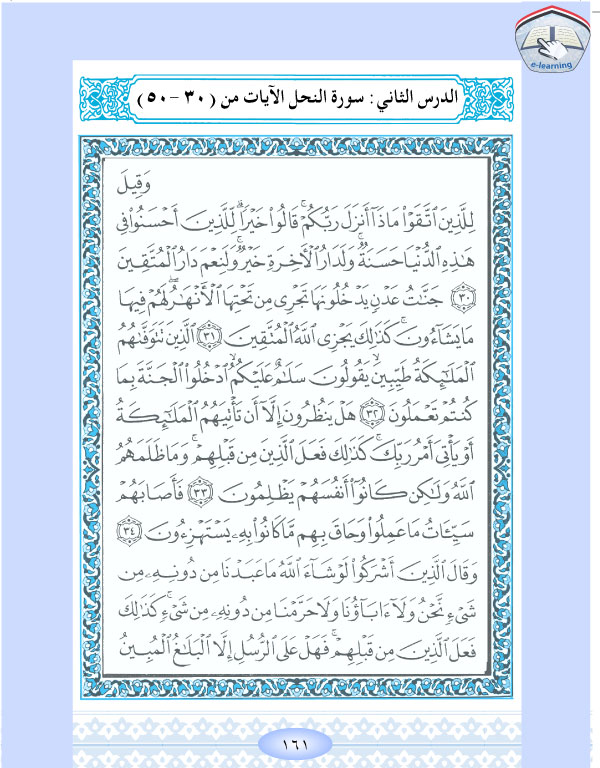 e-learning
الدرس الثاني: سورة النحل الآيات من (٣٠ - ٥٠)
وَقِيلَ
لِلَّذِينَ ٱتَّقَوۡاْ مَاذَآ أَنزَلَ رَبُّكُمۡۚ قَالُواْ خَيۡرٗاۗ لِّلَّذِينَ أَحۡسَنُواْ فِي
هَٰذِهِ ٱلدُّنۡيَا حَسَنَةٞۚ وَلَدَارُ ٱلۡأٓخِرَةِ خَيۡرٞۚ وَلَنِعۡمَ دَارُ ٱلۡمُتَّقِينَ
٣٠ جَنَّٰتُ عَدۡنٖ يَدۡخُلُونَهَا تَجۡرِي مِن تَحۡتِهَا ٱلۡأَنۡهَٰرُۖ لَهُمۡ فِيهَا
مَا يَشَآءُونَۚ كَذَٰلِكَ يَجۡزِي ٱللَّهُ ٱلۡمُتَّقِينَ ٣١ ٱلَّذِينَ تَتَوَفَّىٰهُمُ
ٱلۡمَلَٰٓئِكَةُ طَيِّبِينَۙ يَقُولُونَ سَلَٰمٌ عَلَيۡكُمُۙ ٱدۡخُلُواْ ٱلۡجَنَّةَ بِمَا
كُنتُمۡ تَعۡمَلُونَ ٣٢ هَلۡ يَنظُرُونَ إِلَّآ أَن تَأۡتِيَهُمُ ٱلۡمَلَٰٓئِكَةُ
أَوۡ يَأۡتِيَ أَمۡرُ رَبِّكَۚ كَذَٰلِكَ فَعَلَ ٱلَّذِينَ مِن قَبۡلِهِمۡۚ وَمَا ظَلَمَهُمُ
ٱللَّهُ وَلَٰكِن كَانُوٓاْ أَنفُسَهُمۡ يَظۡلِمُونَ ٣٣ فَأَصَابَهُمۡ
سَيِّـَٔاتُ مَا عَمِلُواْ وَحَاقَ بِهِم مَّا كَانُواْ بِهِۦ يَسۡتَهۡزِءُونَ ٣٤
وَقَالَ ٱلَّذِينَ أَشۡرَكُواْ لَوۡ شَآءَ ٱللَّهُ مَا عَبَدۡنَا مِن دُونِهِۦ مِن
شَيۡءٖ نَّحۡنُ وَلَآ ءَابَآؤُنَا وَلَا حَرَّمۡنَا مِن دُونِهِۦ مِن شَيۡءٖۚ كَذَٰلِكَ
فَعَلَ ٱلَّذِينَ مِن قَبۡلِهِمۡۚ فَهَلۡ عَلَى ٱلرُّسُلِ إِلَّا ٱلۡبَلَٰغُ ٱلۡمُبِينُ
١٦١